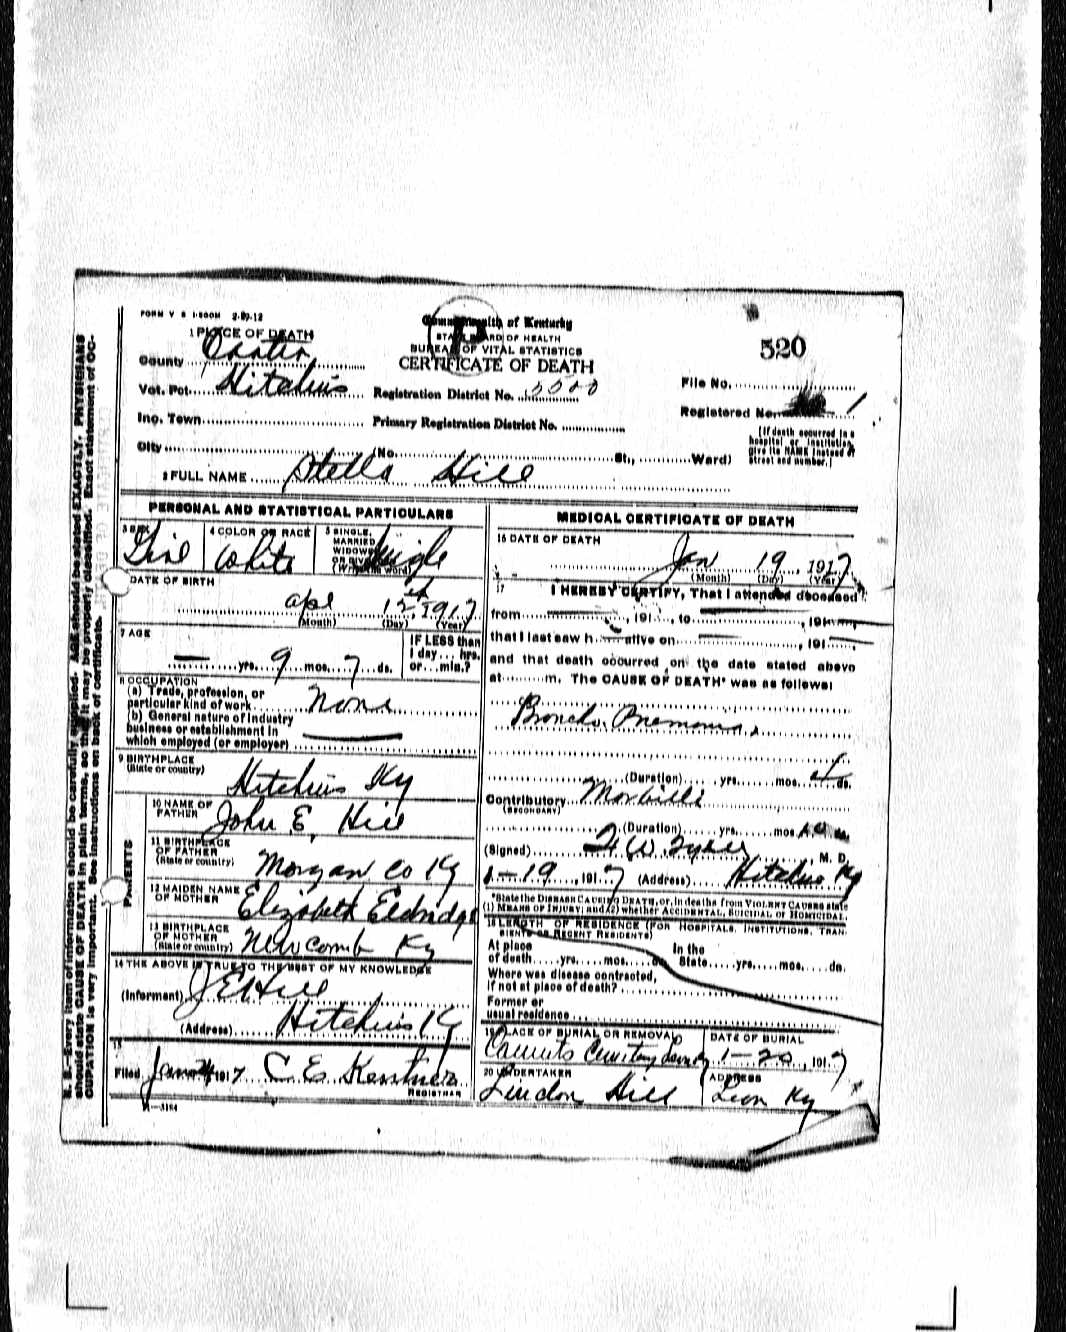 FORM V S 1-500M 2-29-12
Commonwealth of Kentucky
STATE BOARD OF HEALTH
BUREAU OF VITAL STATISTICS
CERTIFICATE OF DEATH
520
1 PLACE OF DEATH
County Carter
Vot. Pct. Hitchins
Registration District No.
File No.
Registered No. 1
Ino. Town
Primary Registration District No.
(If death occurred in a hospital or institution, give its NAME instead of street and number.)
City No. St., Ward)
2 FULL NAME Stella Hill
PERSONAL AND STATISTICAL PARTICULARS
3 SEX Girl
4 COLOR OR RACE White
5 SINGLE, MARRIED, WIDOWED OR DIVORCED (Write the word) Single
DATE OF BIRTH
Apl 12th, 1917
(Month) (Day) (Year)
7 AGE
— yrs. 9 mos. 7 ds.
IF LESS than 1 day... hrs. or... min.?
8 OCCUPATION
(a) Trade, profession, or particular kind of work None
(b) General nature of industry business or establishment in which employed (or employer)
9 BIRTHPLACE (State or country) Hitchins Ky
PARENTS
10 NAME OF FATHER John E. Hill
11 BIRTHPLACE OF FATHER (State or country) Morgan Co Ky
12 MAIDEN NAME OF MOTHER Elizabeth Eldridge
13 BIRTHPLACE OF MOTHER (State or country) Newcomb Ky
14 THE ABOVE IS TRUE TO THE BEST OF MY KNOWLEDGE
(Informant) J E Hill
(Address) Hitchins Ky
15
Filed Jan 1917 C. E.
REGISTRAR
MEDICAL CERTIFICATE OF DEATH
16 DATE OF DEATH
Jan 19, 1917
(Month) (Day) (Year)
17 I HEREBY CERTIFY, That I attended deceased
from , 191 , to , 191
that I last saw h alive on , 191
and that death occurred on the date stated above
at m. The CAUSE OF DEATH* was as follows:
Broncho Pnemonia,
(Duration) yrs. mos. ds.
Contributory (SECONDARY) Morbilli
(Duration) yrs. mos. ds.
(Signed) , M. D.
1-19, 1917 (Address) Hitchins Ky
*State the DISEASE CAUSING DEATH, or, in deaths from VIOLENT CAUSES state
(1) MEANS OF INJURY; and (2) whether ACCIDENTAL, SUICIDAL or HOMICIDAL.
18 LENGTH OF RESIDENCE (FOR HOSPITALS, INSTITUTIONS, TRANSIENTS OR RECENT RESIDENTS)
At place of death yrs. mos. ds.
In the State yrs. mos. ds.
Where was disease contracted, if not at place of death?
Former or usual residence
19 PLACE OF BURIAL OR REMOVAL
Cemetery
DATE OF BURIAL
1-20, 1917
20 UNDERTAKER
Lindon Hill
ADDRESS
Leon Ky
N. B.—Every item of information should be carefully supplied. AGE should be stated EXACTLY. PHYSICIANS
should state CAUSE OF DEATH in plain terms, so that it may be properly classified. Exact statement of OC-
CUPATION is very important. See instructions on back of certificate.